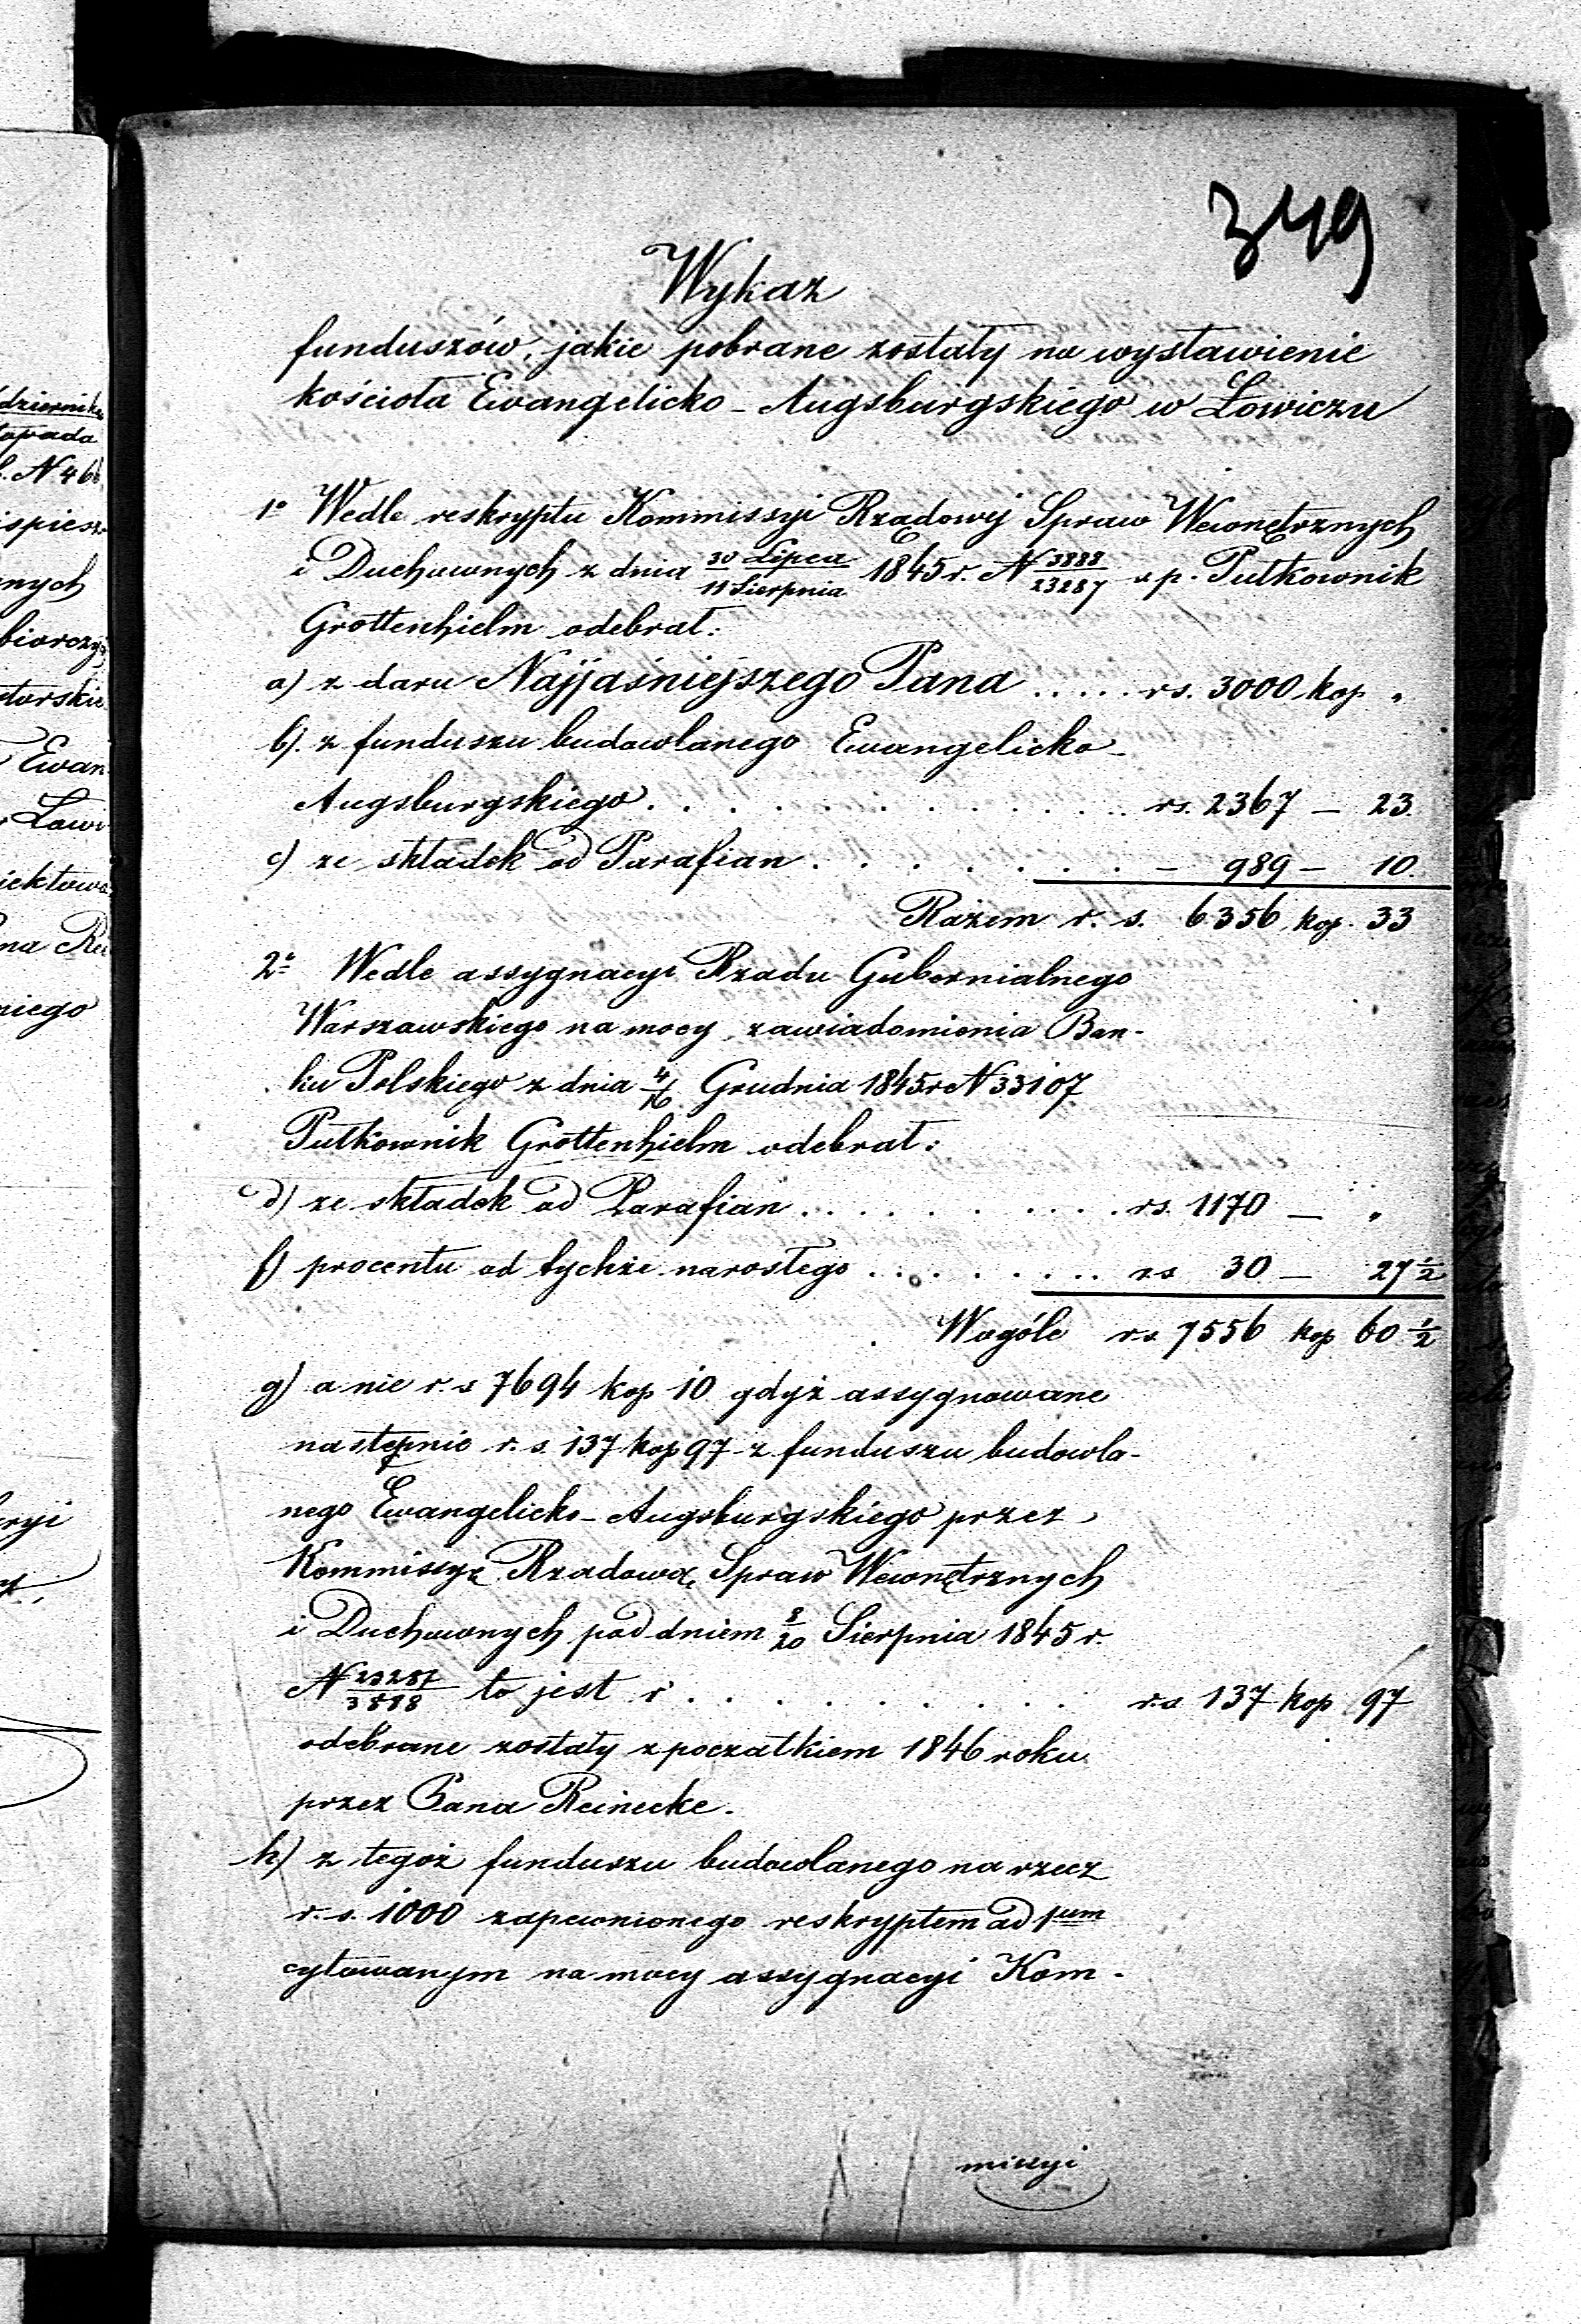 349
Wykaz
funduszów, jakie pobrane zostały na wystawienie
kościoła Ewangelicko-Augsburgskiego w Łowiczu
1o Wedle reskryptu Kommissyi Rządowej Spraw Wewnętrznych
i Duchownych z dnia 30 Lipca/11 Sierpnia 1845 r. N 3888/23287 ś. p. Pułkownik
Grottenhielm odebrał:
a) z daru Najjaśniejszego Pana ..... rs. 3000 kop "
b). z funduszu budowlanego Ewangelicko-
Augsburgskiego . . . . . . . . . . . rs. 2367 — 23.
c) ze składek od Parafian . . . . . . . — 989 — 10.
Razem r. s. 6356 kop. 33
2o Wedle assygnacyi Rządu Gubernialnego
Warszawskiego na mocy zawiadomienia Ban-
ku Polskiego z dnia 4/16 Grudnia 1845 r N 33107
Pułkownik Grottenhielm odebrał:
d) ze składek od Parafian . . . . . . . . . . rs. 1170 — "
f) procentu od tychże narosłego . . . . . . . . rs 30 — 27 1/2
Wogóle rs. 7556 kop 60 1/2
g) a nie r. s 7694 kop 10 gdyż assygnowane
następnie r. s. 137 kop 97 z funduszu budowla-
nego Ewangelicko-Augsburgskiego przez
Kommissyę Rządową Spraw Wewnętrznych
i Duchownych pod dniem 8/20 Sierpnia 1845 r.
N 23287/3888 to jest r . . . . . . . . . . r.s 137 kop 97
odebrane zostały z początkiem 1846 roku
przez Pana Reinecke.
h) z tegoż funduszu budowlanego na rzecz
r. s. 1000 zapewnionego reskryptem ad 1um
cytowanym na mocy assygnacyi Kom-
missyi